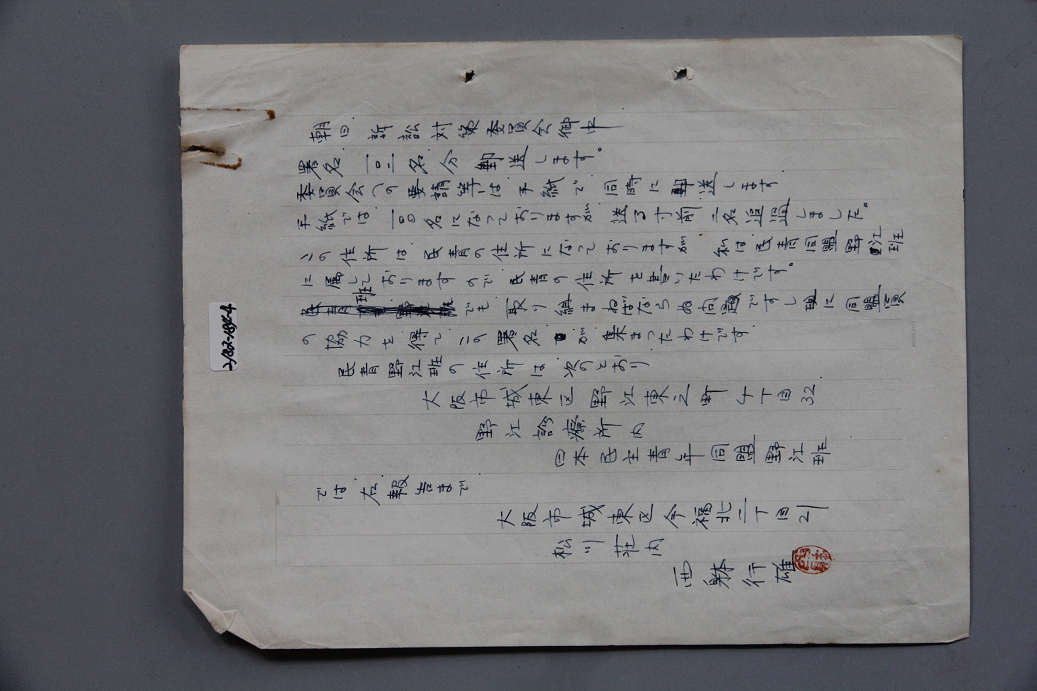 朝日訴訟対策委員会御中
署名一〇二名分郵送します。
委員会への要請等は手紙で同時に郵送します
手紙では一〇〇名になっておりますが送る寸前二名追過しました。
この住所は民青の住所になっておりますが私は民青同盟野江班
に属しておりますので民青の住所を書いたわけです。
でも取り組まねばならぬ問題ですし更に同盟員
の協力を得てこの署名が集まったわけです
民青野江班の住所は次のとおり
大阪市城東区野江東之町4丁目32
野江診療所内
日本民主青年同盟野江班
では右報告まで
大阪市城東区今福北二丁目21
松川荘内
西躰行雄